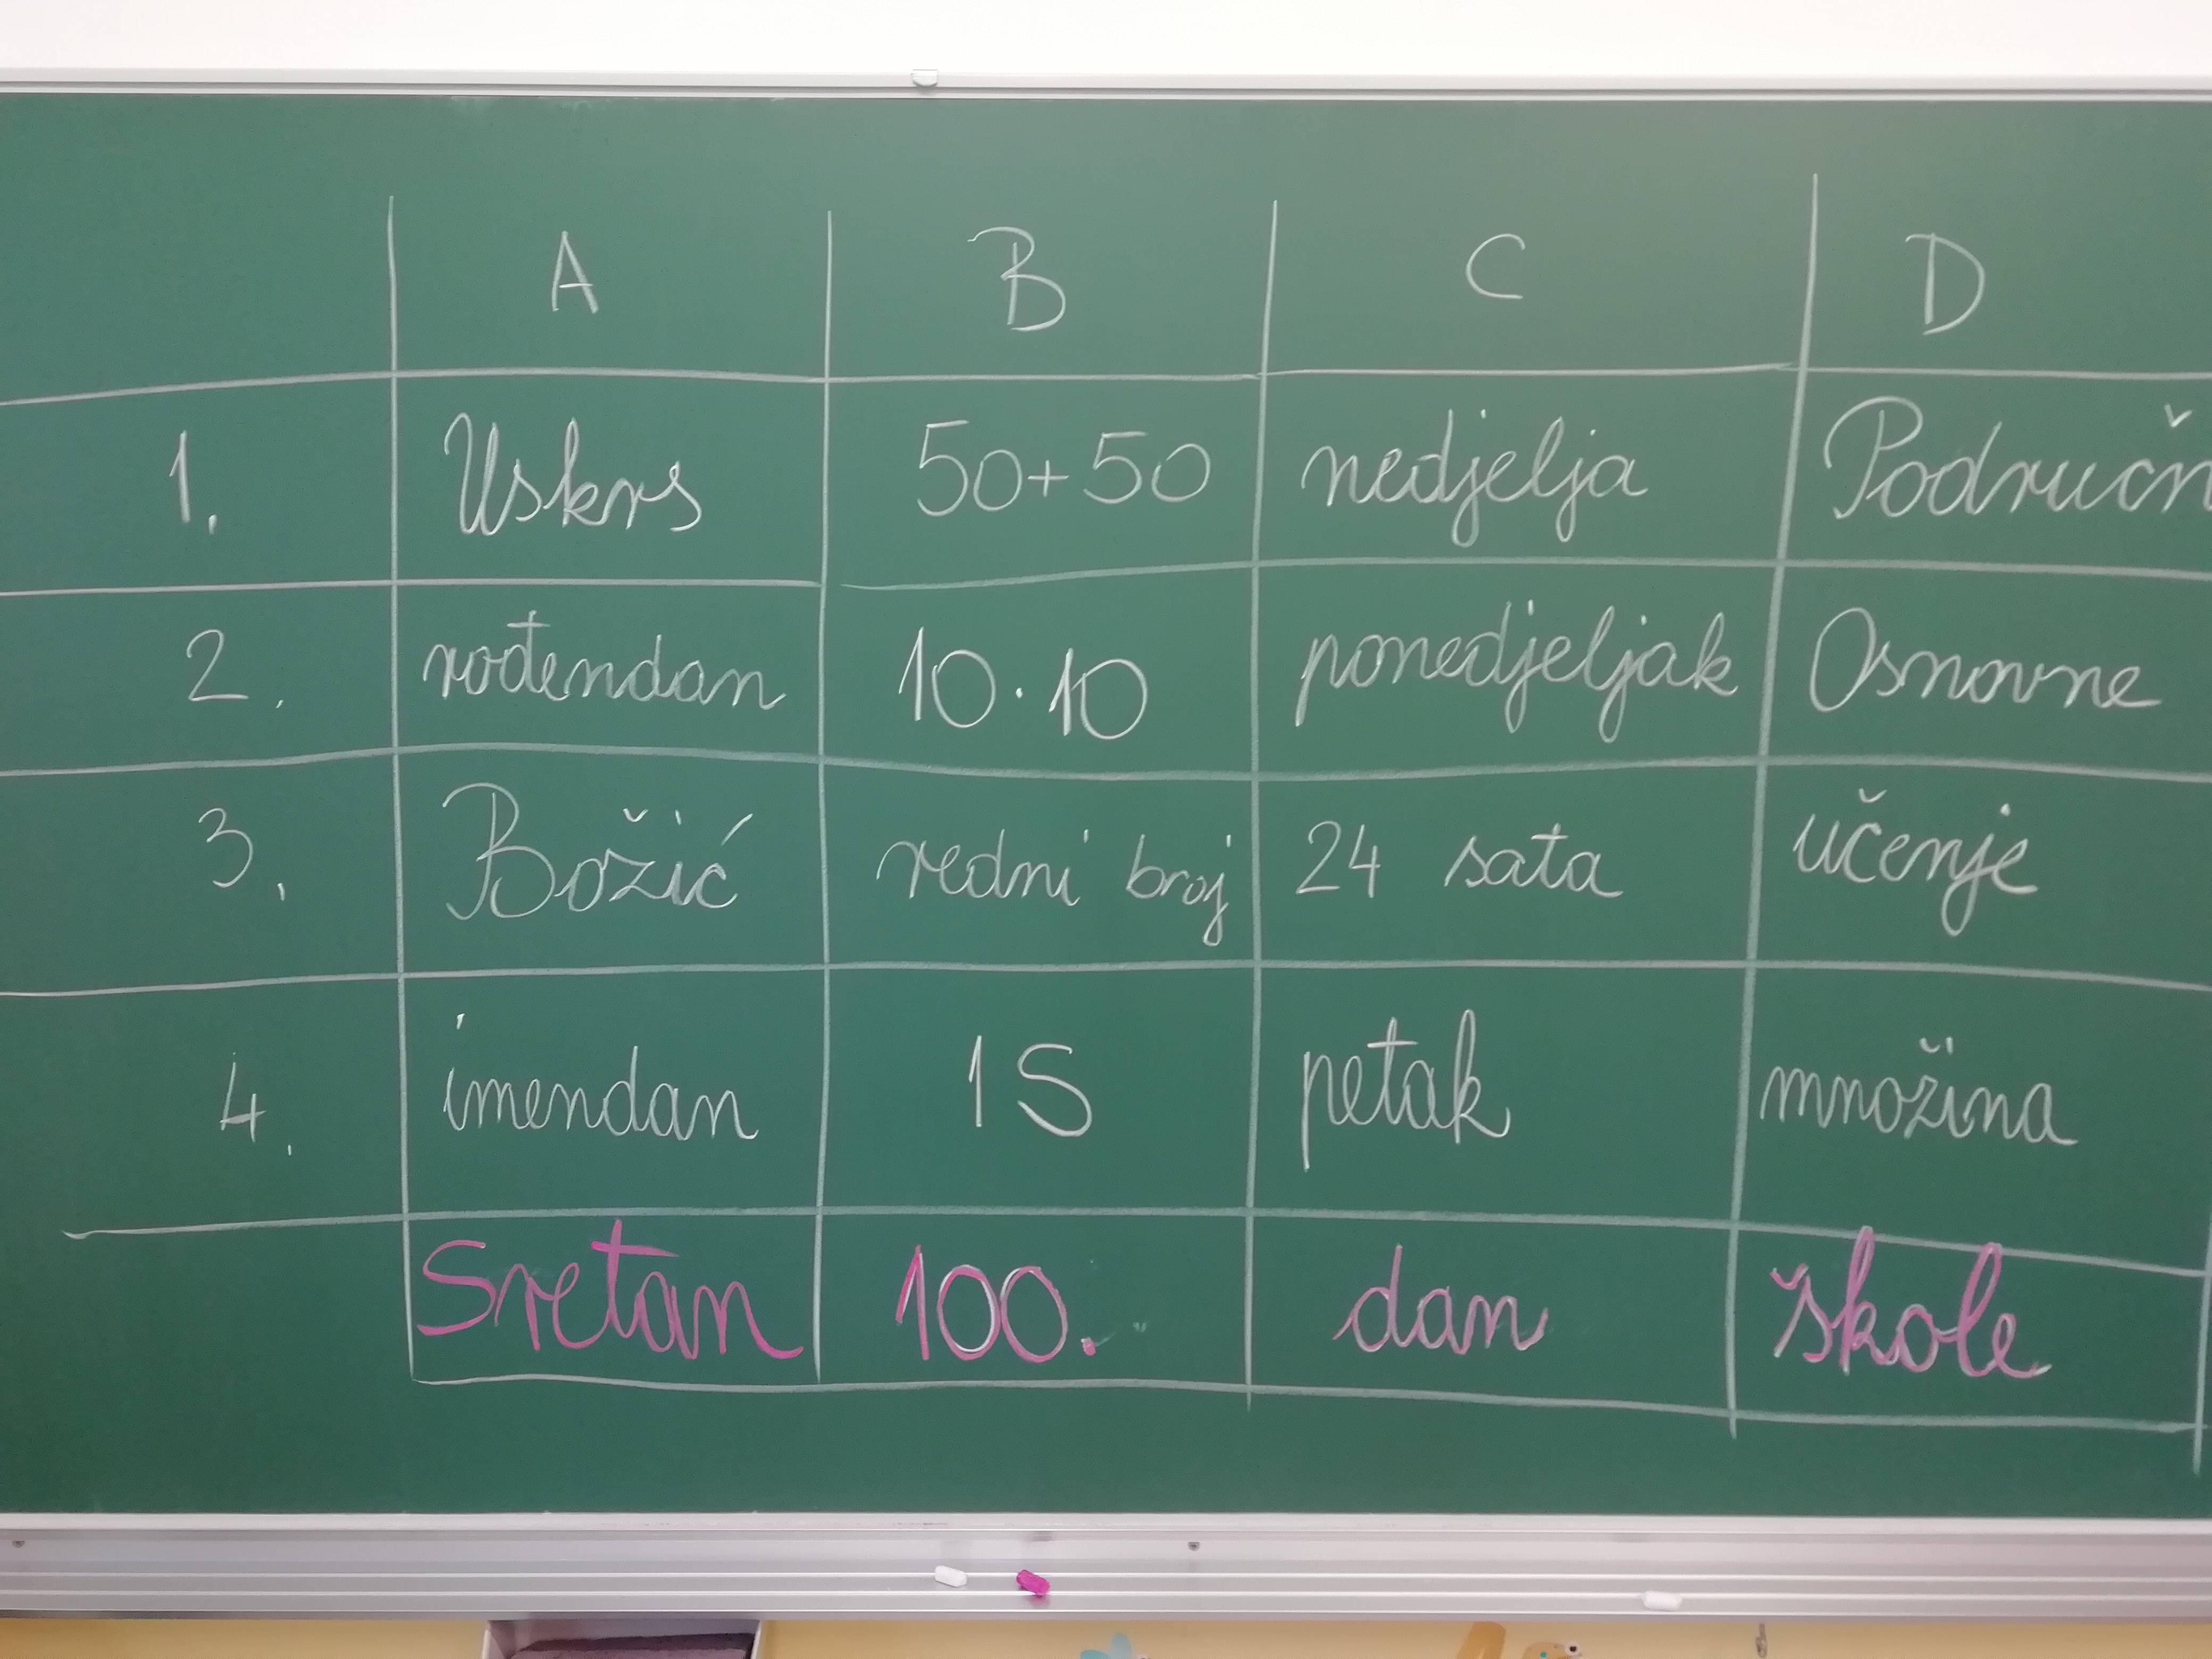 A B C D
1. Uskrs 50+50 nedjelja Područn
2. rođendan 10·10 ponedjeljak Osnovne
3. Božić redni broj 24 sata učenje
4. imendan 1S petak množina
Sretan 100. dan škole